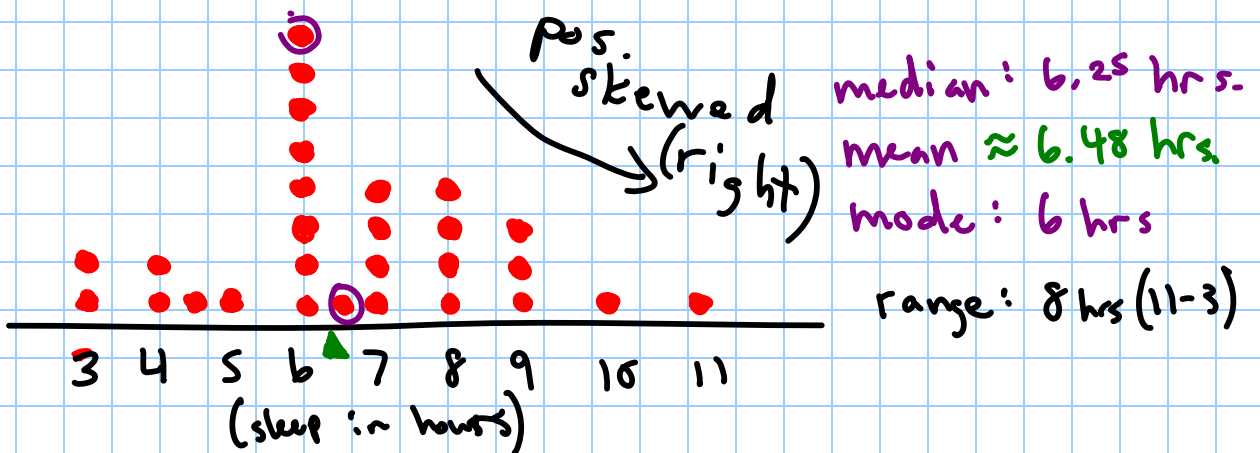 pos.
skewed
(right)
median: 6.25 hrs.
mean ≈ 6.48 hrs.
mode: 6 hrs
range: 8 hrs (11-3)
3 4 5 6 7 8 9 10 11
(sleep in hours)